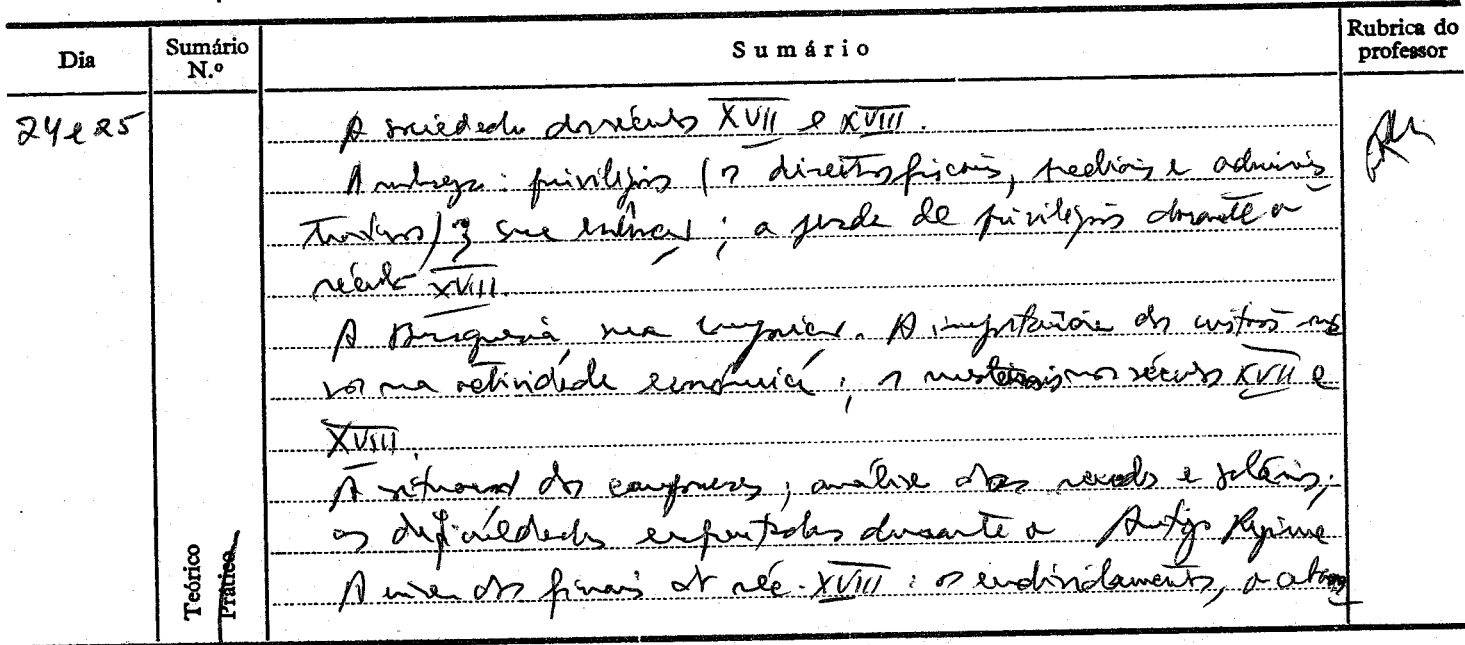 Dia
Sumário N.º
Sumário
Rubrica do professor
24 e 25
A sociedade dos séculos XVII e XVIII.
A nobreza: privilégios (os direitos fiscais, prediais e adminis
trativos) e sua evolução; a perda de privilégios durante o
século XVIII.
A Burguesia, sua. A importância dos
na actividade económica; os nos séculos XVII e
XVIII.
A situação dos camponeses; análise das rendas e salários;
as dificuldades enfrentadas durante o Antigo Regime
A crise dos finais do séc. XVIII: o endividamento, o
Teórico
Prático